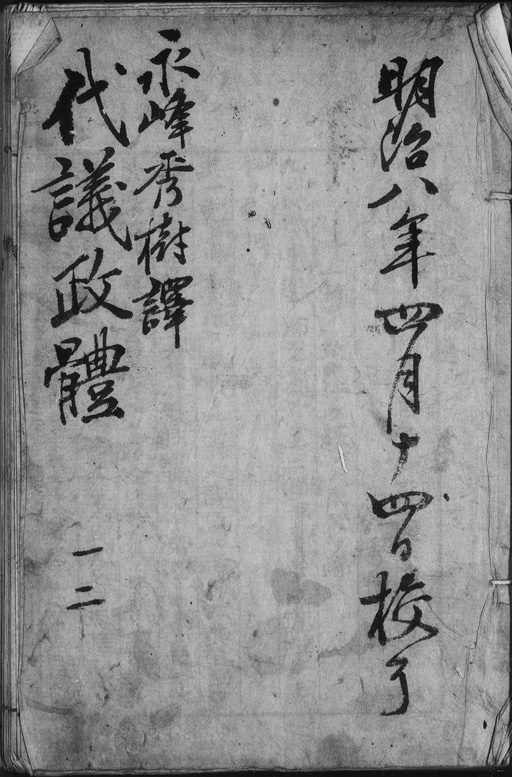 明治八年四月十四日校了
永峰秀樹譯
代議政體 一二